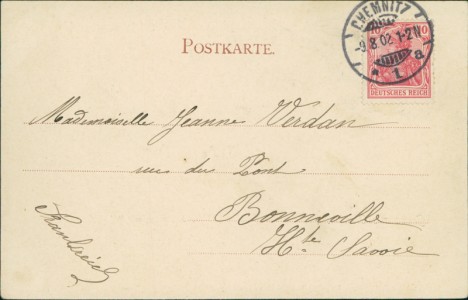 POSTKARTE.
CHEMNITZ
-9.8.02.1-2N
* 1. a
10
DEUTSCHES REICH
Mademoiselle Jeanne Verdan
rue du Pont
Bonneville
Hte Savoie
Frankreich